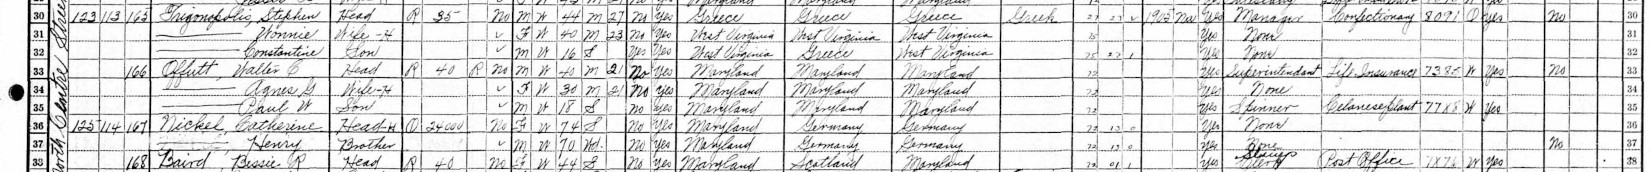 North Centre Street
30 123 113 165 Trigonopolis, Stephen Head R 35 No M W 44 M 27 No Yes Greece Greece Greece Greek 1905 Na Yes Manager Confectionary 8091 O Yes No 30
31 Wife-H F W 40 M 23 No Yes West Virginia West Virginia West Virginia Yes None 31
32 Constantine Son M W 16 S Yes Yes West Virginia Greece West Virginia Yes None 32
33 166 Offutt, Walter C Head R 40 R No M W 40 M 21 No Yes Maryland Maryland Maryland 72 Yes Superintendant Life Insurance W Yes No 33
34 Agnes G Wife-H F W 30 M 21 No Yes Maryland Maryland Maryland 72 Yes None 34
35 Paul W Son M W 18 S No Yes Maryland Maryland Maryland 72 Yes Spinner Celanese Plant W Yes 35
36 125 114 167 Nickel, Catherine Head-H O 24000 No F W 74 S No Yes Maryland Germany Germany 72 13 0 Yes None 36
37 Henry Brother M W 70 Wd No Yes Maryland Germany Germany 72 13 0 Yes None No 37
168 Baird, Bessie R Head R 40 No F W 44 S No Yes Maryland Scotland Maryland 72 01 1 Yes Clerk Post Office W Yes 38